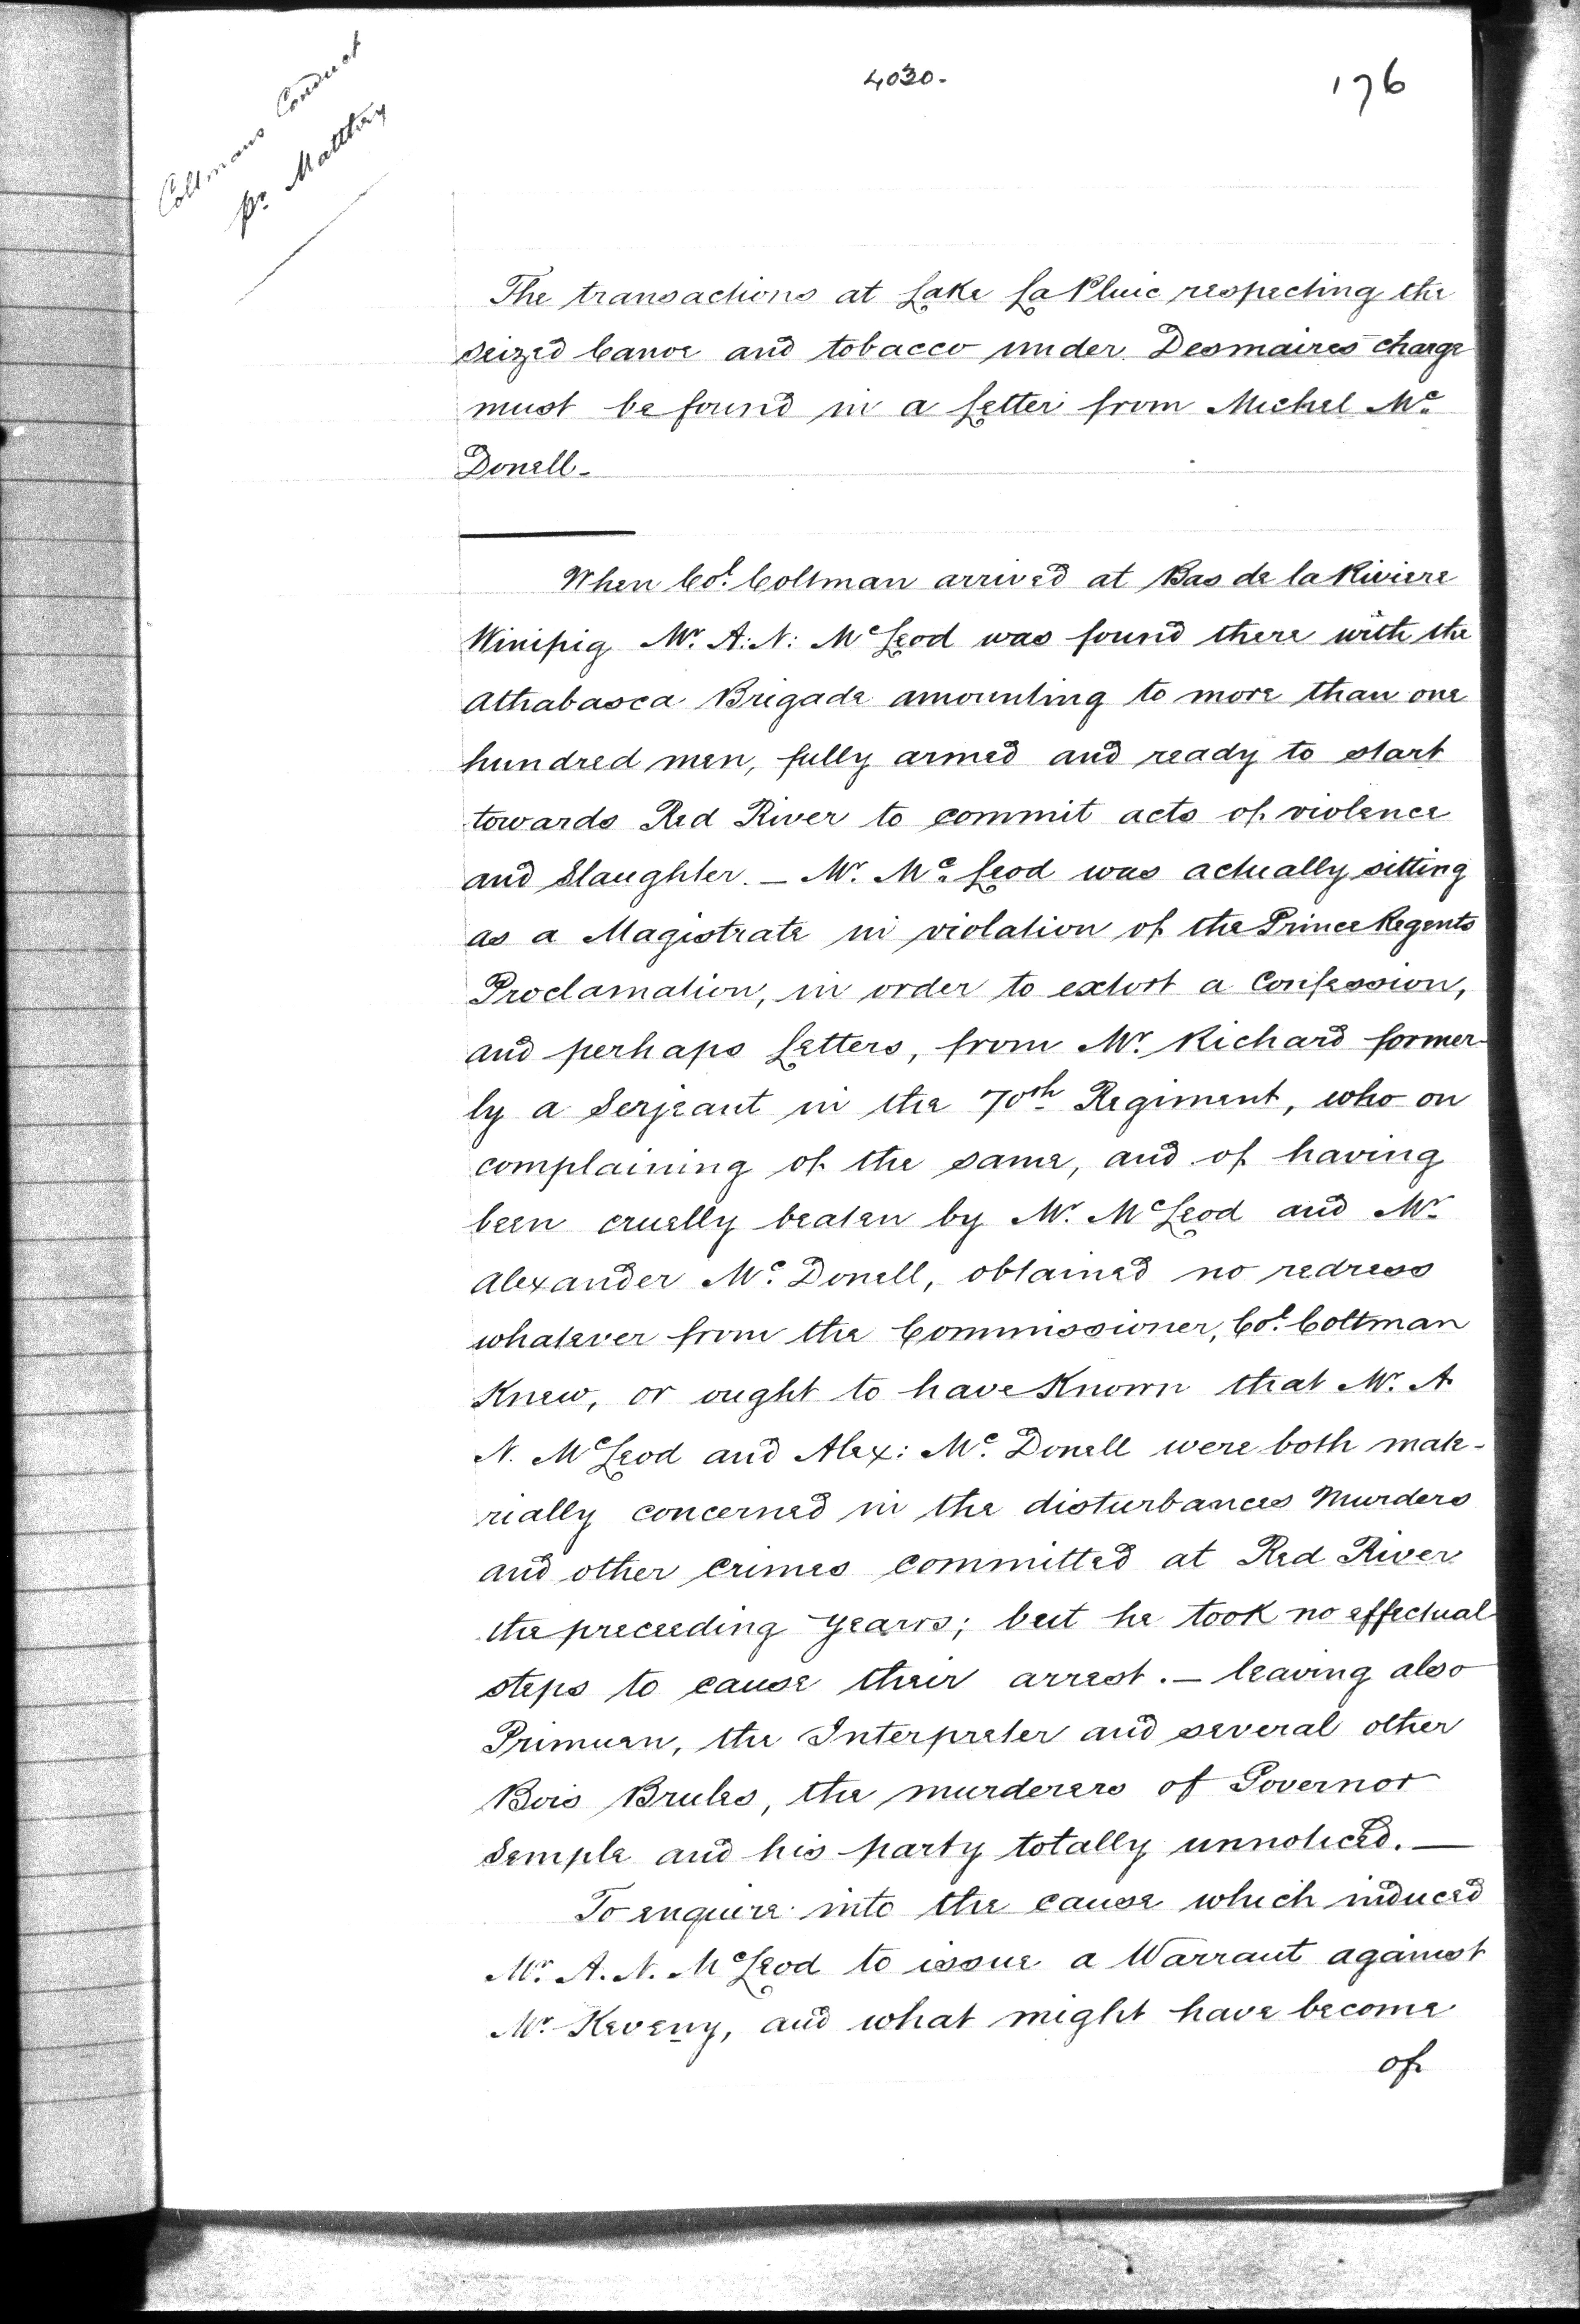 4030.
176
Coltmans Conduct
pr. Matthey
The transactions at Lake La Pluie respecting the
seized Canoe and tobacco under Desmaires charge
must be found in a Letter from Michel Mc.
Donell.
When Col. Coltman arrived at Bas de la Riviere
Winipig Mr. A: N: McLeod was found there with the
Athabasca Brigade amounting to more than one
hundred men, fully armed and ready to start
towards Red River to commit acts of violence
and Slaughter. — Mr. Mc. Leod was actually sitting
as a Magistrate in violation of the Prince Regents
Proclamation, in order to extort a Confession,
and perhaps Letters, from Mr. Richard former-
ly a Serjeant in the 70th Regiment, who on
complaining of the same, and of having
been cruelly beaten by Mr. McLeod and Mr.
Alexander Mc. Donell, obtained no redress
whatever from the Commissioner, Col. Coltman
Knew, or ought to have Known that Mr. A.
N. McLeod and Alex: Mc. Donell were both mate-
rially concerned in the disturbances Murders
and other crimes committed at Red River
the preceeding years; but he took no effectual
steps to cause their arrest. — leaving also
Primuan, the Interpreter and several other
Bois Brules, the murderers of Governor
Semple and his party totally unnoticed. —
To enquire into the cause which induced
Mr. A. N. McLeod to issue a Warrant against
Mr. Keveny, and what might have become
of